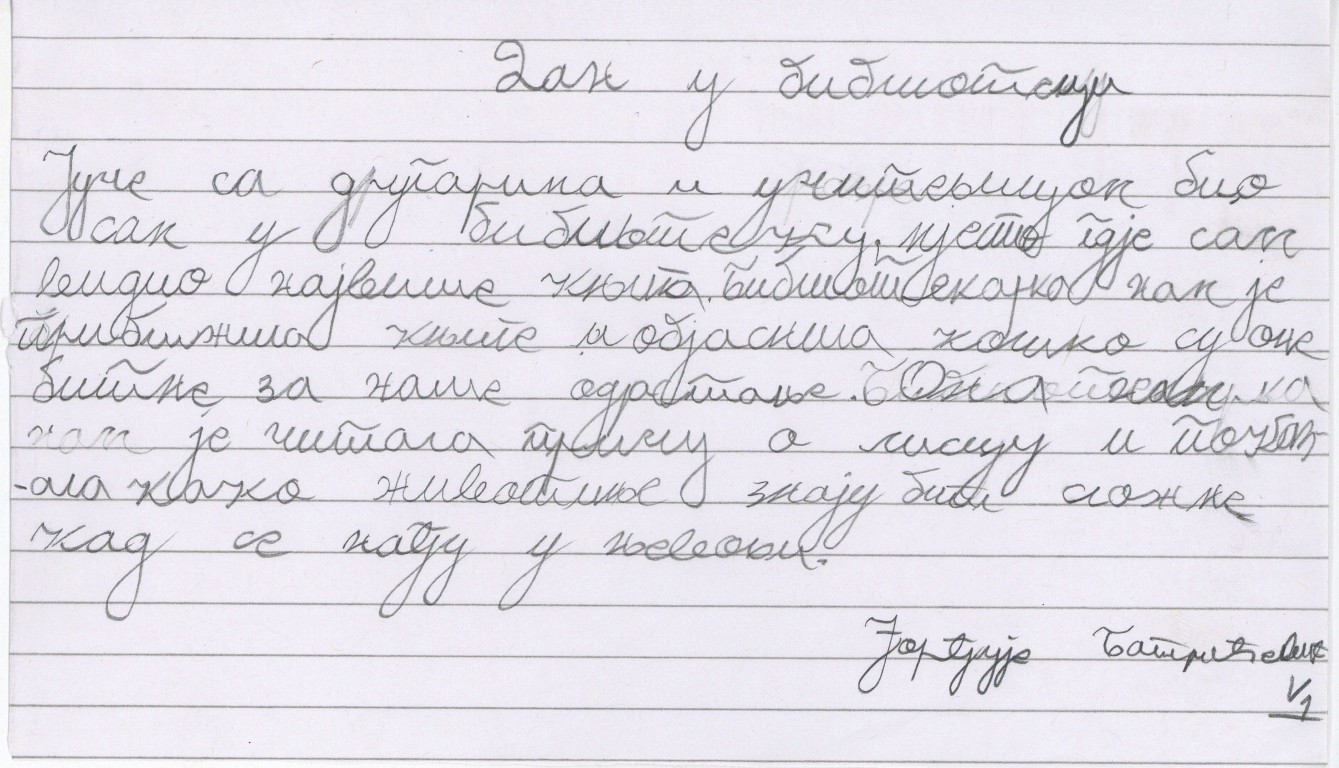 Дан у библиотеци
Јуче са другарима и учитељицом био
сам у библиотеку, мјесто гдје сам
видио највише књига. Библиотекарка нам је
приближила књиге и објаснила колико су оне
битне за наше одрастање. Она
нам је читала причу о лисцу и показ-
-ала како животиње знају бити сложне
кад се нађу у невољи.
Ђорђије Батрићевић
V1